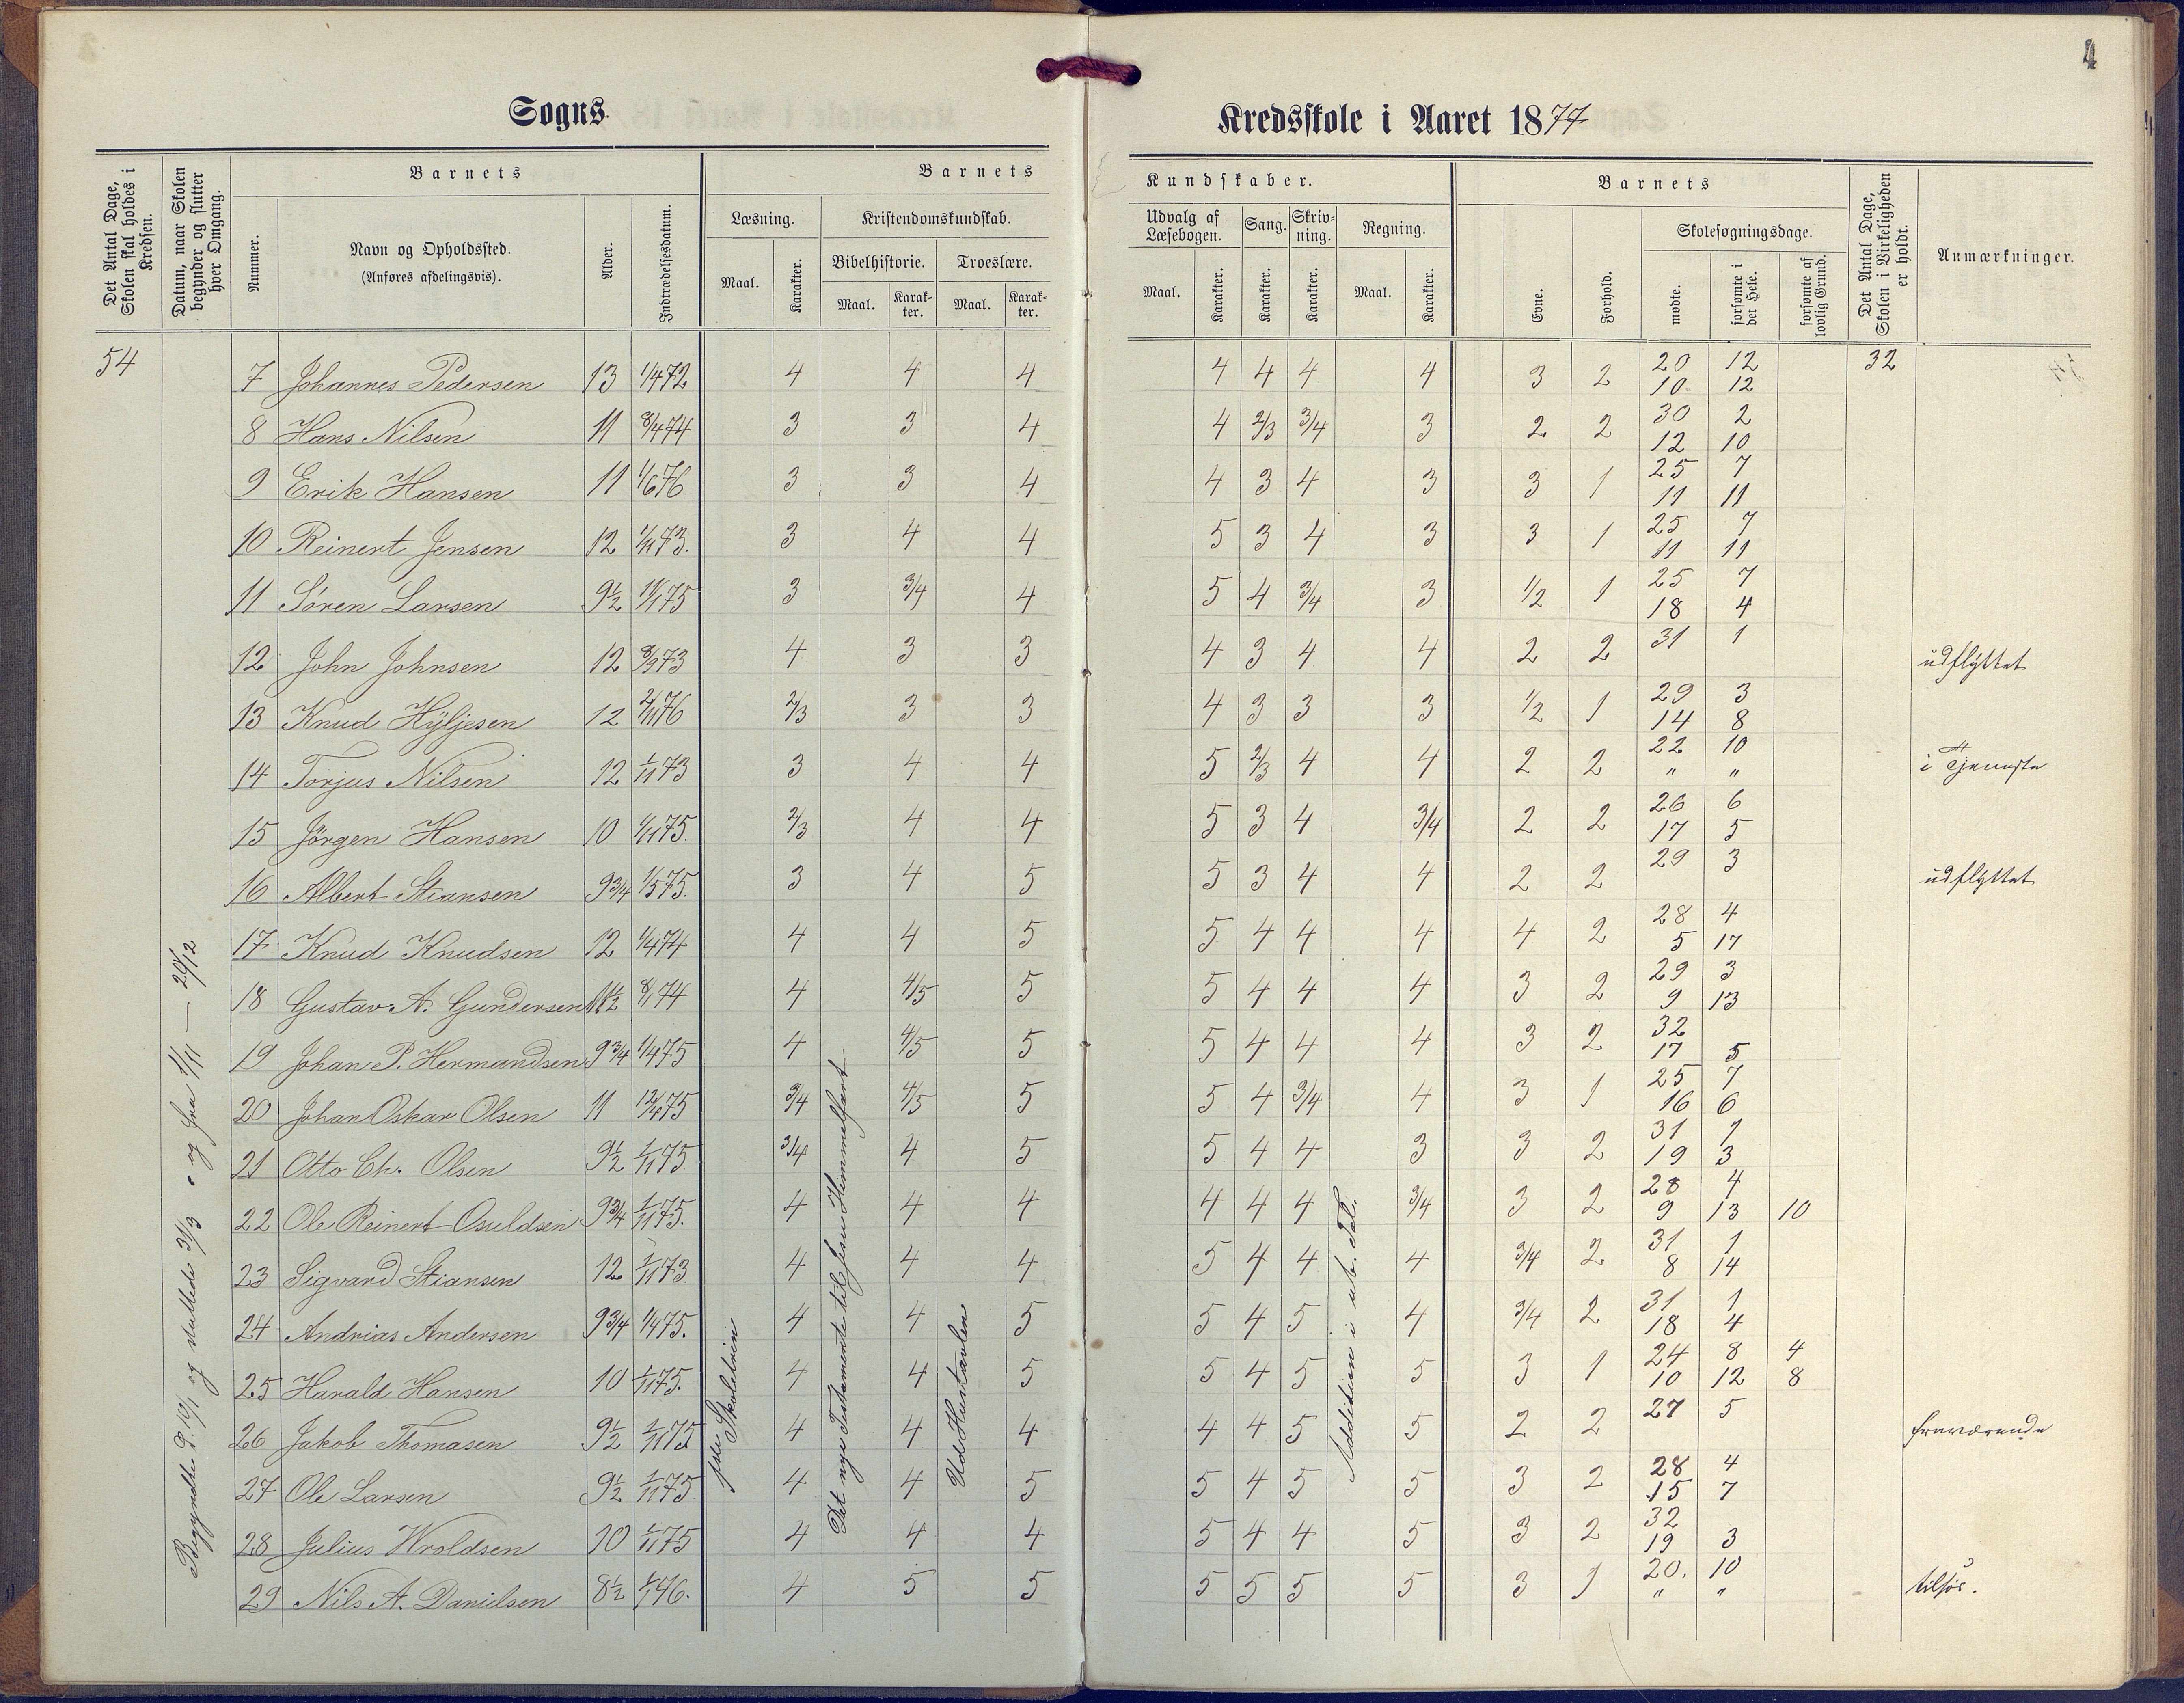 4
Sogns
Kredsskole i Aaret 1877
Det Antal Dage, Skolen skal holdes i Kredsen.
Datum, naar Skolen begynder og slutter hver Omgang.
Barnets
Nummer.
Navn og Opholdssted.
(Anføres afdelingsvis).
Alder.
Indtrædelsesdatum.
Barnets
Læsning.
Maal.
Karakter.
Kristendomskundskab.
Bibelhistorie.
Maal.
Karak-
ter.
Troeslære.
Maal.
Karak-
ter.
Kundskaber.
Udvalg af
Læsebogen.
Maal.
Karakter.
Sang.
Karakter.
Skriv-
ning.
Karakter.
Regning.
Maal.
Karakter.
Barnets
Evne.
Forhold.
Skolesøgningsdage.
mødte.
forsømte i det Hele.
forsømte af lovlig Grund.
Det Antal Dage, Skolen i Virkeligheden er holdt.
Anmærkninger.
54
32
7 Johannes Pedersen 13 1/4 72 4 4 4 4 4 4 4 3 2 20 12
10 12
8 Hans Nilsen 11 8/4 74 3 3 4 4 2/3 3/4 3 2 2 30 2
12 10
9 Erik Hansen 11 1/6 76 3 3 4 4 3 4 3 3 1 25 7
11 11
10 Reinert Jensen 12 1/11 73. 3 4 4 5 3 4 3 3 1 25 7
11 11
11 Sören Larsen 9½ 11/1 75 3 3/4 4 5 4 3/4 3 1/2 1 25 7
18 4
12 John Johnsen 12 8/9 73 4 3 3 4 3 4 4 2 2 31 1 udflyttet
13 Knud Hÿljesen 12 2/11 76 2/3 3 3 4 3 3 3 1/2 1 29 3
14 8
14 Torjus Nilsen 12 1/11 73 3 4 4 5 2/3 4 4 2 2 22 10 i Tjeneste
" "
15 Jörgen Hansen 10 1/11 75. 2/3 4 4 5 3 4 3/4 2 2 26 6
17 5
16 Albert Stiansen 9¾ 1/5 75. 3 4 5 5 3 4 4 2 2 29 3 udflyttet
17 Knud Knudsen 12 1/4 74 4 4 5 5 4 4 4 4 2 28 4
5 17
18 Gustav A. Gundersen 11½ 8/1 74 4 4/5 5 5 4 4 4 3 2 29 3
9 13
19 Johan P. Hermandsen 9¾ 1/4 75 4 4/5 5 5 4 4 4 3 2 32
17 5
20 Johan Oskar Olsen 11 12/4 75 3/4 4/5 5 5 4 3/4 4 3 1 25 7
16 6
21 Otto Ch. Olsen 9½ 1/11 75 3/4 4 5 5 4 4 3 3 2 31 1
19 3
22 Ole Reinert Osuldsen 9¾ 1/11 75. 4 4 4 4 4 4 3/4 3 2 28 4
9 13 10
23 Sigvard Stiansen 12 1/11 73 4 4 4 5 4 4 4 3/4 2 31 1
8 14
24 Andrias Andersen 9¾ 1/4 75. 4 4 5 5 4 5 4 3/4 2 31 1
18 4
25 Harald Hansen 10 1/11 75. 4 4 5 5 4 5 5 3 1 24 8 4
10 12 8
26 Jakob Thomasen 9½ 1/11 75 4 4 4 4 4 5 5 2 2 27 5 fraværende
27 Ole Larsen 9½ 1/11 75 4 4 5 5 4 5 5 3 2 28 4
15 7
28 Julius Wroldsen 10 1/11 75 4 4 4 5 4 4 5 3 2 32
19 3
29 Nils A. Danielsen 8½ 76. 4 5 5 5 5 5 5 3 1 20. 10 tilsös.
" "
Begyndte d. 10/1 og sluttede 31/3 og fra 1/11 — 20/12
Skoletrin
Det nye Testamente til Jesu Himmelfart
Ud Hustavlen
Addition i ub. Tal.